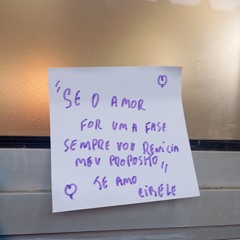 "SE O AMOR
FOR UMA FASE
SEMPRE VOU REINICIAR
MEU PROPOSITO"
TE AMO
CIBELE